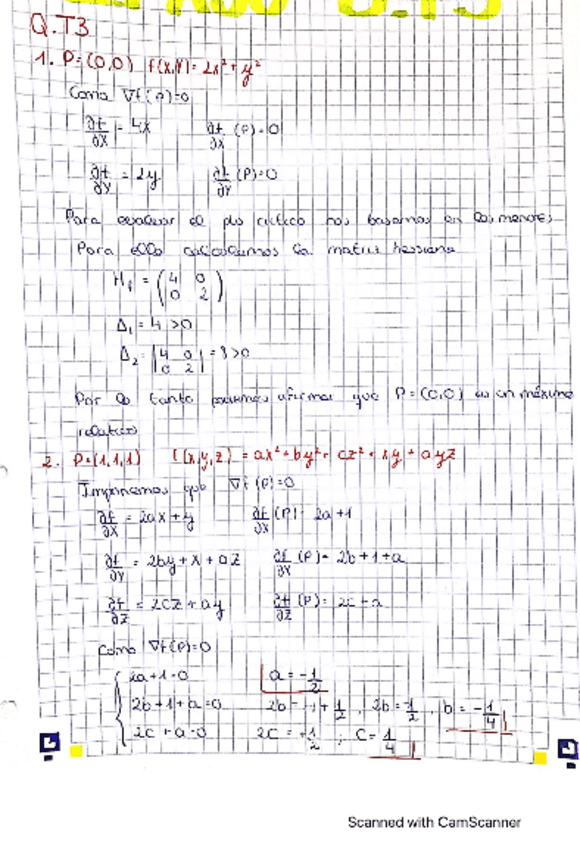 Q.T3
1. P=(0,0) f(x,y)= 2x²+y²
Como ∇f(P)=0
∂f/∂x = 4x ∂f/∂x (P)=0
∂f/∂y = 2y ∂f/∂y (P)=0
Para evaluar el pto crítico nos basamos en los menores
Para ello calculamos la matriz hessiana
Hf = (4 0
0 2)
Δ₁ = 4 >0
Δ₂ = |4 0
0 2| = 8 >0
Por lo tanto podemos afirmar que P=(0,0) es un máximo
relativo
2. P=(1,1,1) f(x,y,z) = ax²+by²+cz²+xy+ayz
Imponemos que ∇f(P)=0
∂f/∂x = 2ax+y ∂f/∂x (P)= 2a+1
∂f/∂y = 2by+x+az ∂f/∂y (P)= 2b+1+a
∂f/∂z = 2cz+ay ∂f/∂z (P)= 2c+a
Como ∇f(P)=0
2a+1=0 a = -1/2
2b+1+a=0 2b= -1+1/2, 2b=1/2, b= -1/4
2c+a=0 2c= +1/2; c= 1/4
Scanned with CamScanner